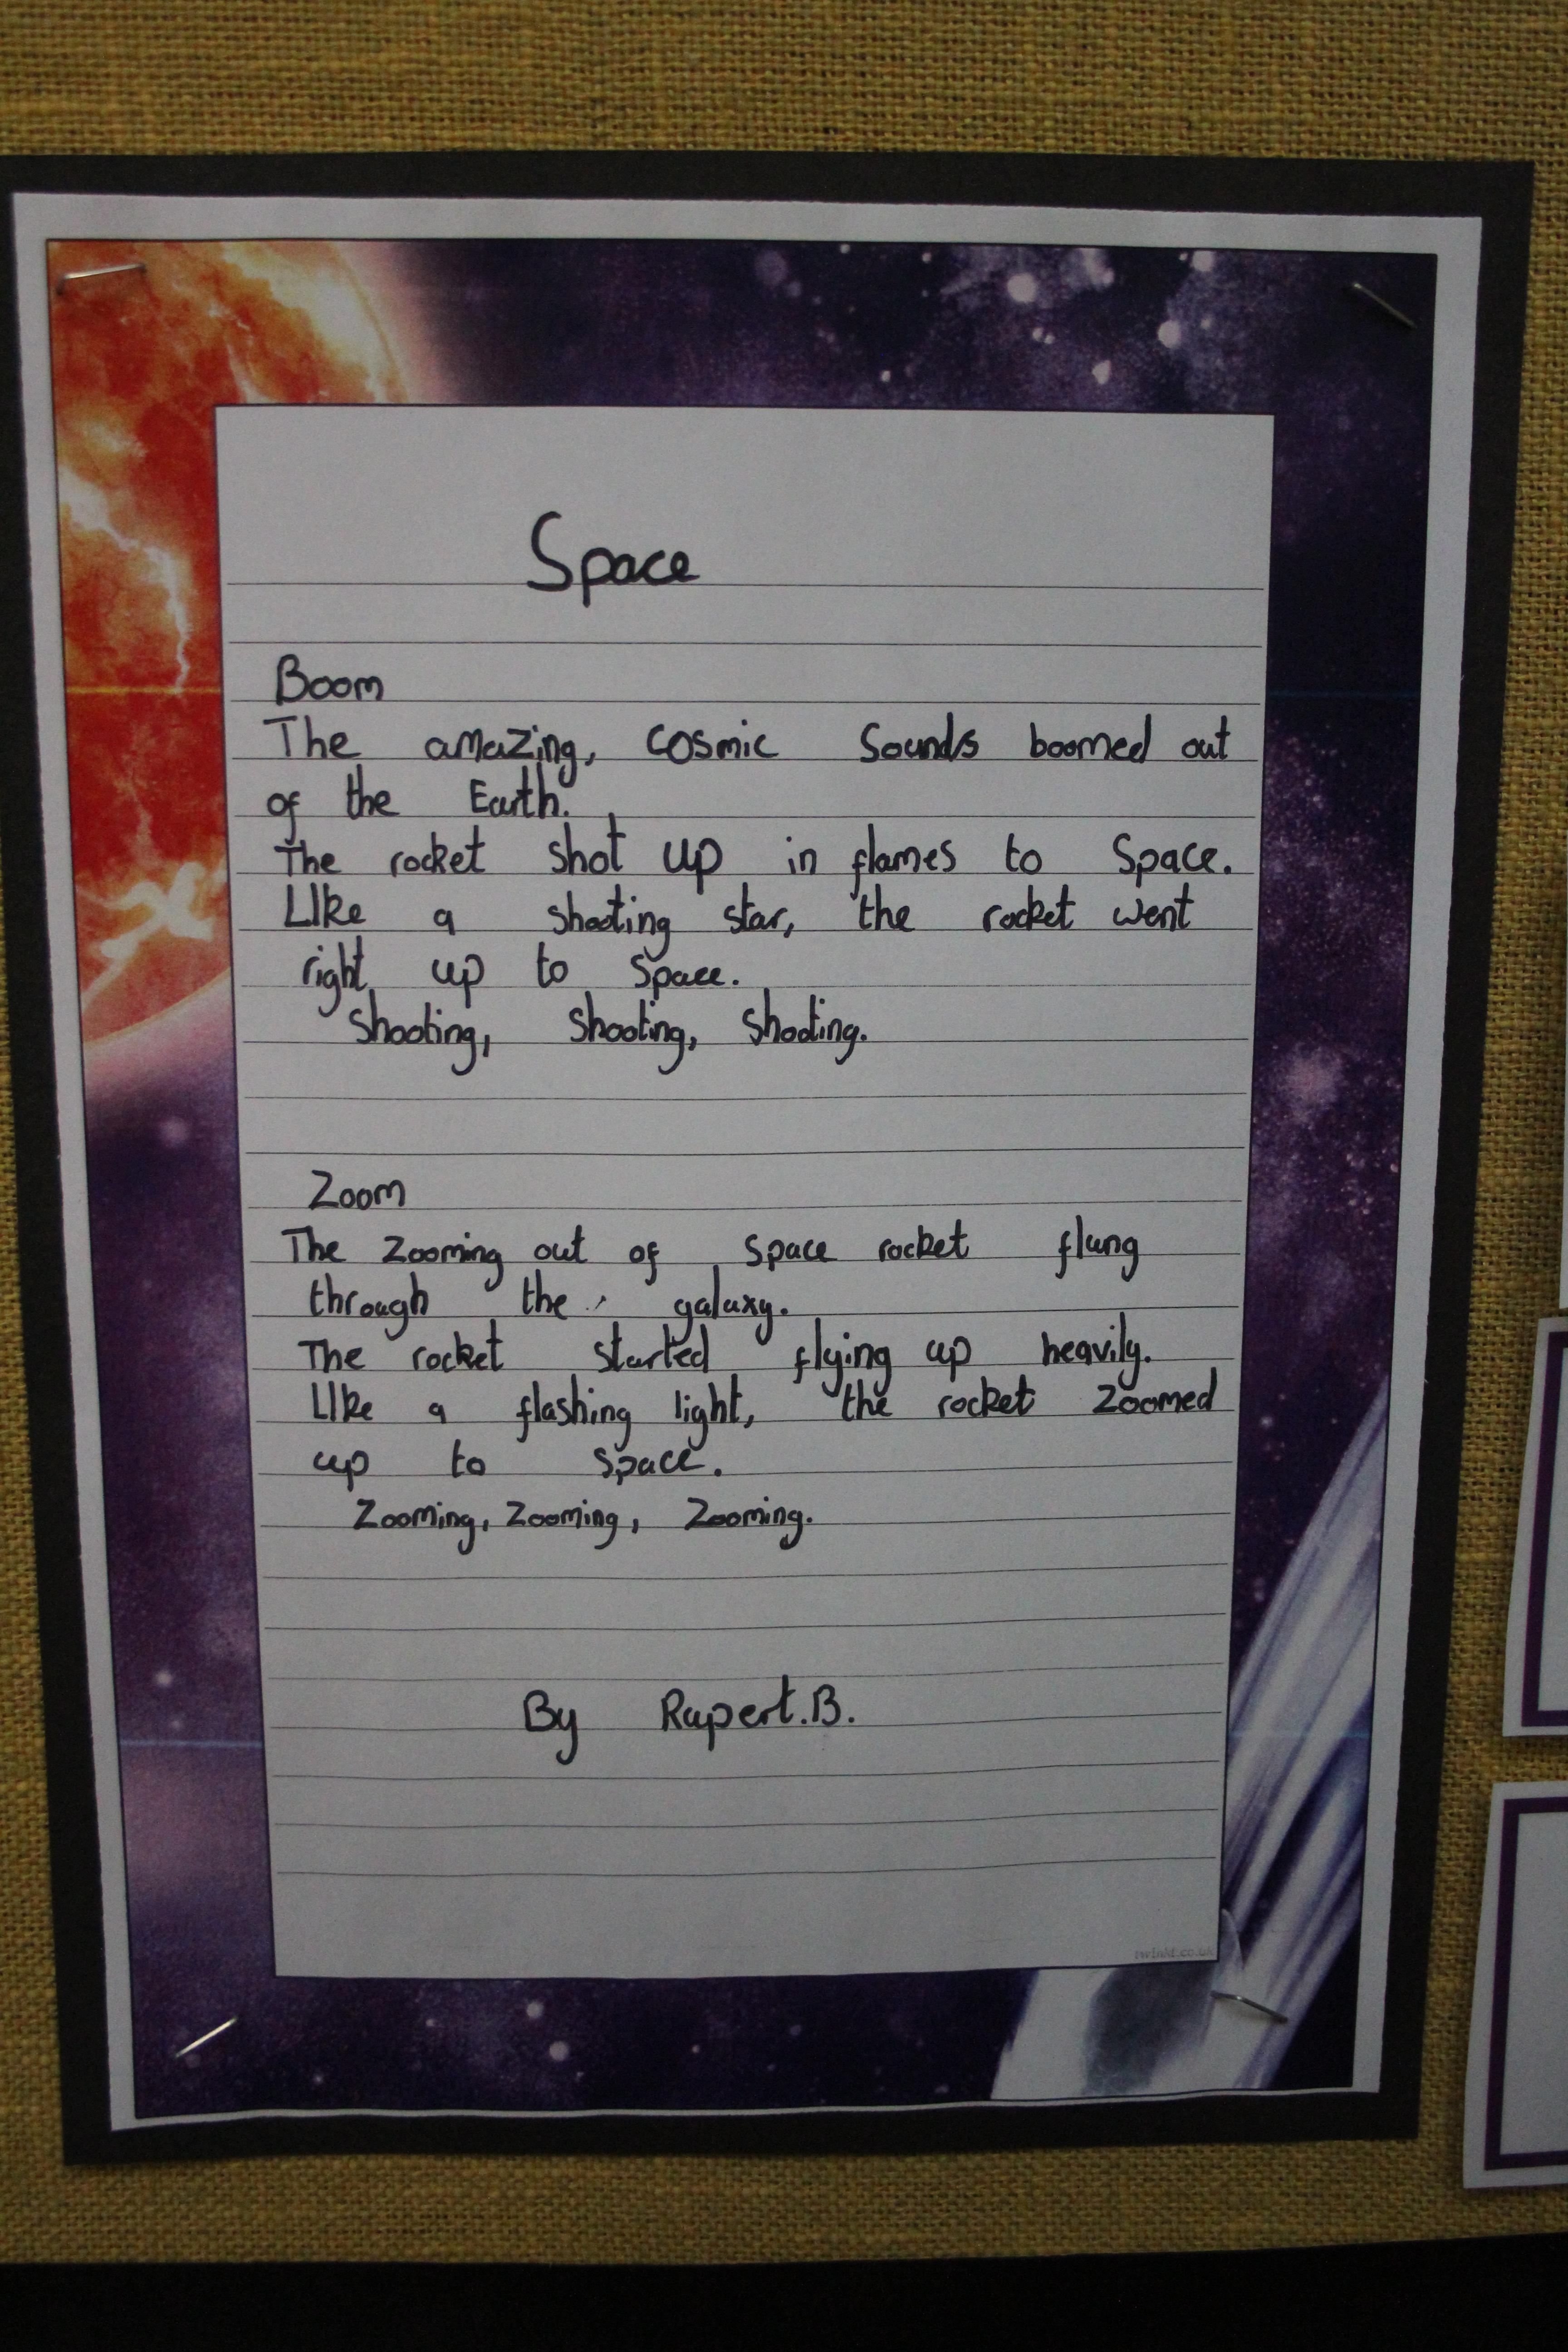 Space
Boom
The amazing, cosmic Sounds boomed out
of the Earth.
The rocket shot up in flames to Space.
LIke a shooting star, the rocket went
right up to Space.
Shooting, Shooting, Shooting.
Zoom
The Zooming out of Space rocket flung
through the galaxy.
The rocket started flying up heavily.
LIke a flashing light, the rocket Zoomed
up to Space.
Zooming, Zooming, Zooming.
By Rupert.B.
twinkl.co.uk